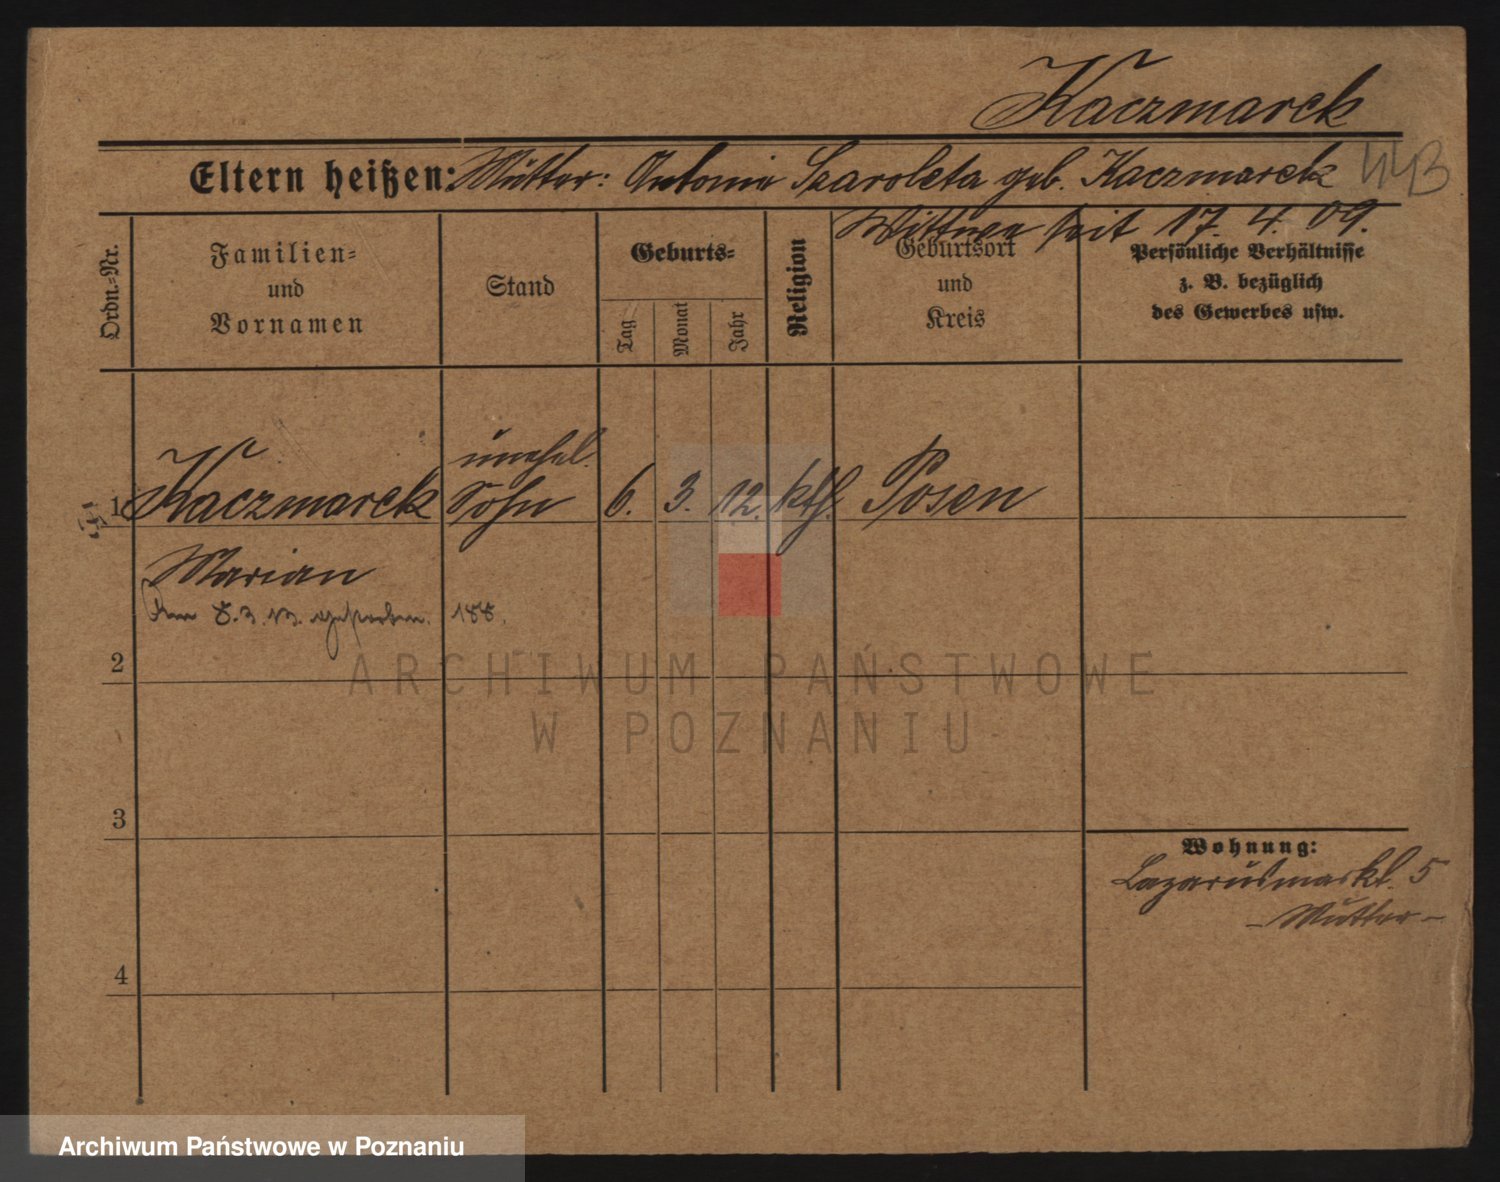 Kaczmarek
Eltern heißen: Mutter: Antonie Szaroleta geb. Kaczmarek 44B
Wittwe seit 17. 4. 09.
Ordn.-Nr.
Familien-
und
Vornamen
Stand
Geburts-
Tag
Monat
Jahr
Religion
Geburtsort
und
Kreis
Persönliche Verhältnisse
z. B. bezüglich
des Gewerbes usw.
unehel.
1 Kaczmarek Sohn 6. 3. 12. kth. Posen
Marian
Am 8.3.13. gestorben. 188.
2
3
4
Wohnung:
Lazarusmarkt. 5
- Mutter -
ARCHIWUM PAŃSTWOWE
W POZNANIU
Archiwum Państwowe w Poznaniu